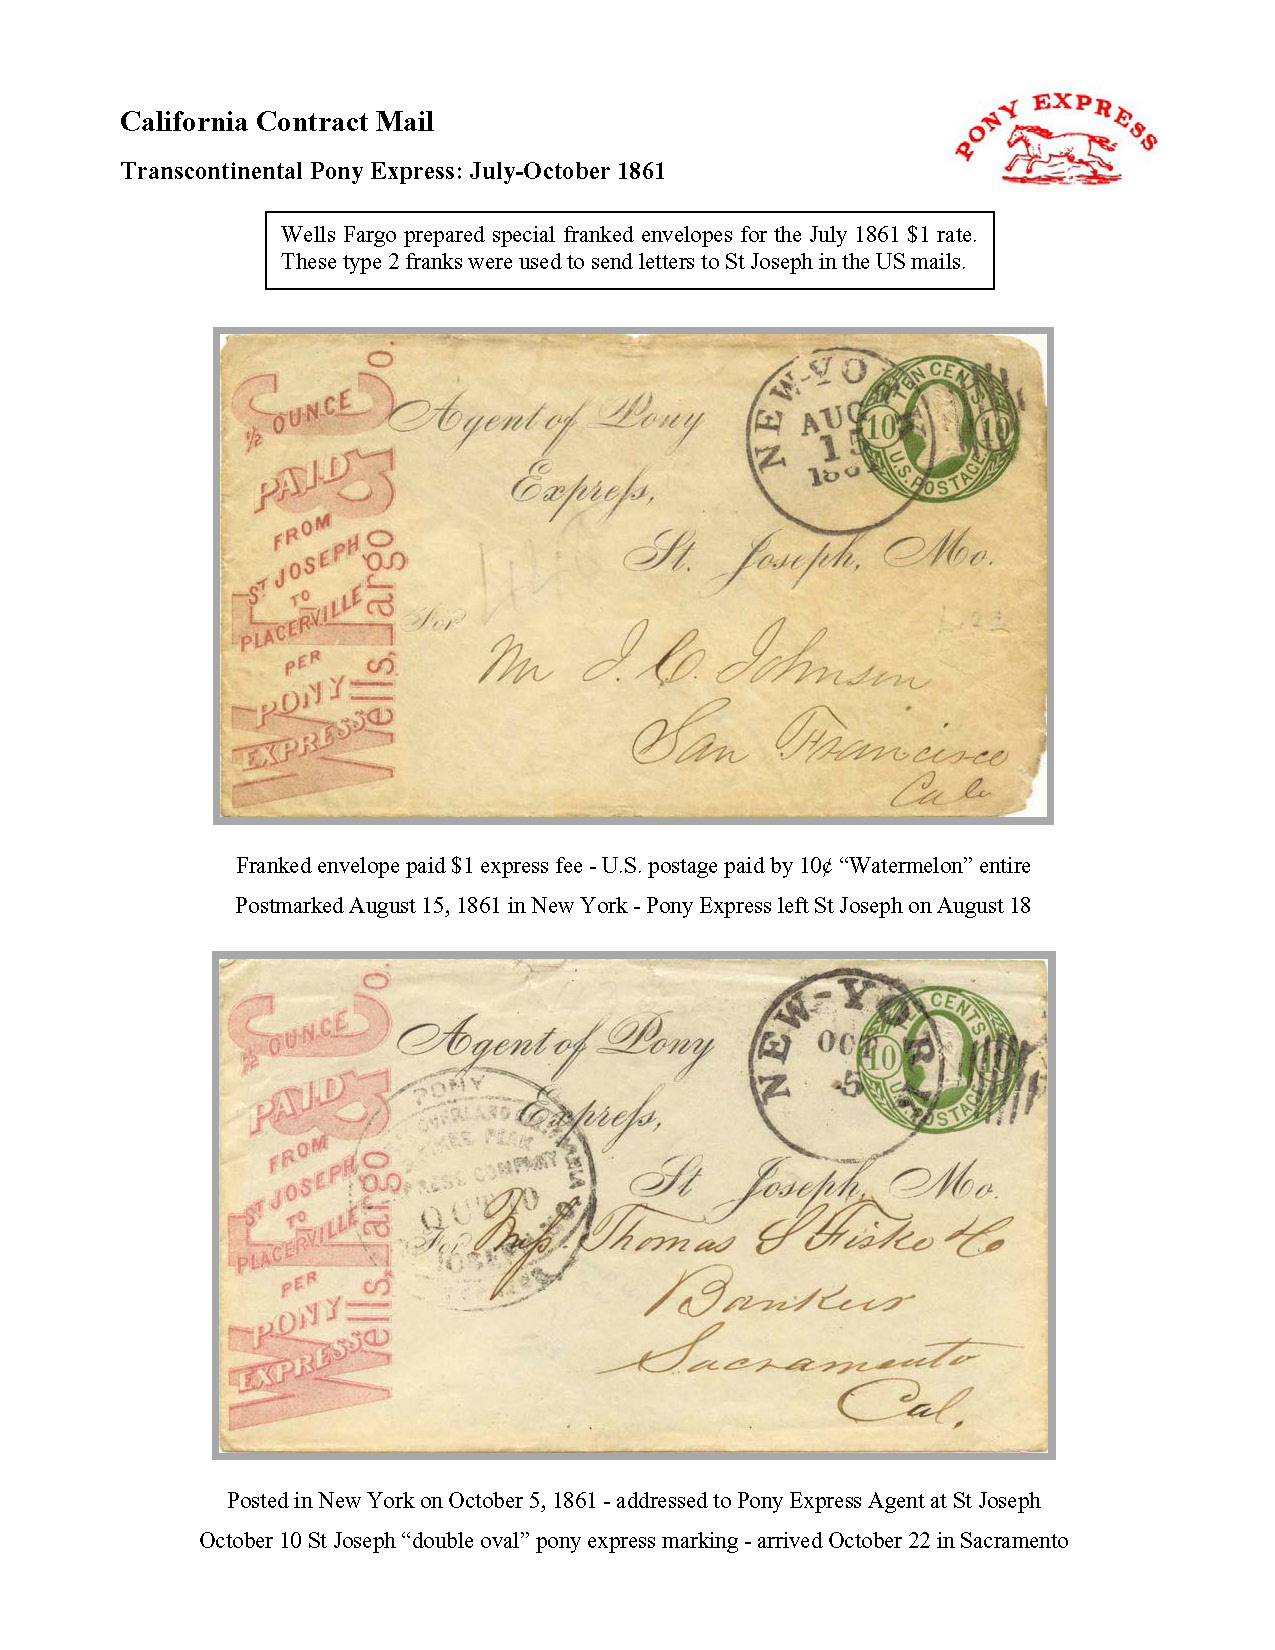 California Contract Mail
PONY EXPRESS
Transcontinental Pony Express: July-October 1861
Wells Fargo prepared special franked envelopes for the July 1861 $1 rate.
These type 2 franks were used to send letters to St Joseph in the US mails.
Wells, Fargo & Co.
½ OUNCE
PAID
FROM
ST JOSEPH
TO
PLACERVILLE
PER
PONY
EXPRESS
NEW-YO
AUG
15
TEN CENTS
10 10
U.S. POSTAGE
Agent of Pony
Express,
St. Joseph, Mo.
For
Mr J. C. Johnson
San Francisco
Cal
Franked envelope paid $1 express fee - U.S. postage paid by 10¢ “Watermelon” entire
Postmarked August 15, 1861 in New York - Pony Express left St Joseph on August 18
Wells, Fargo & Co.
½ OUNCE
PAID
FROM
ST JOSEPH
TO
PLACERVILLE
PER
PONY
EXPRESS
NEW-YOR
OCT
5
CENTS
10 10
U.S. POSTAGE
Agent of Pony
Express,
St Joseph, Mo.
PONY
OVERLAND
PEAK
COMPANY
For Mess. Thomas S Fiske & Co
Bankers
Sacramento
Cal.
Posted in New York on October 5, 1861 - addressed to Pony Express Agent at St Joseph
October 10 St Joseph “double oval” pony express marking - arrived October 22 in Sacramento